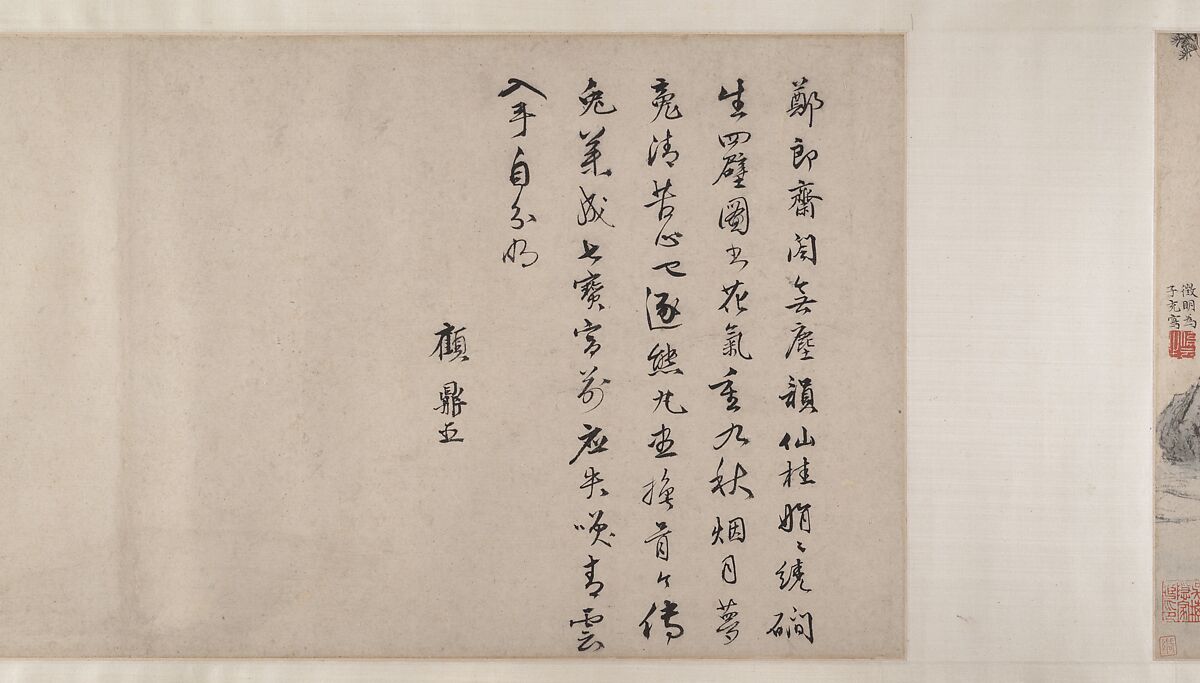 徵明為
子充寫
鄭郎齋閤無塵韻仙桂娟〻繞磵
生四壁圖書花氣重九秋烟月夢
魂清苦心已逐熊丸盡換骨今傳
兔藥成七寶宮前應失咲青雲
入手自分明
顧鼎臣